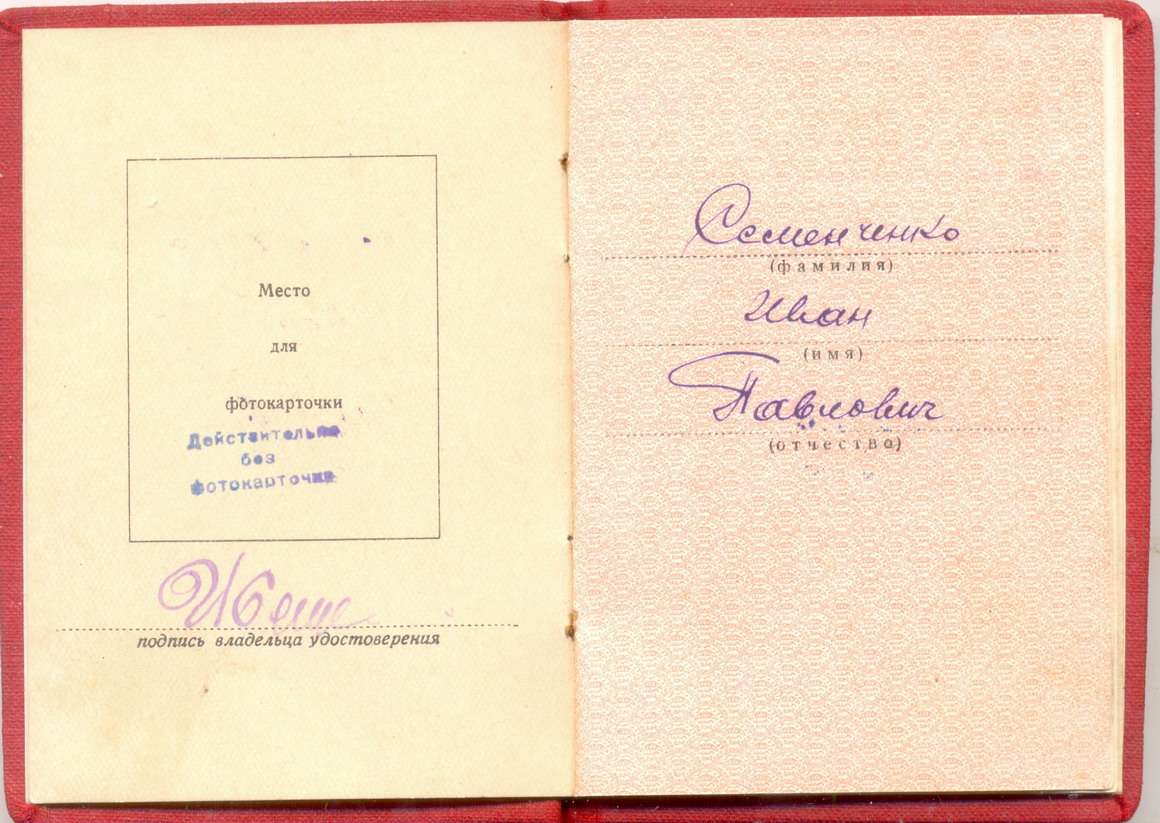 Место
для
фотокарточки
Действительно
без
фотокарточки
подпись владельца удостоверения
Семенченко
(фамилия)
Иван
(имя)
Павлович
(отчество)